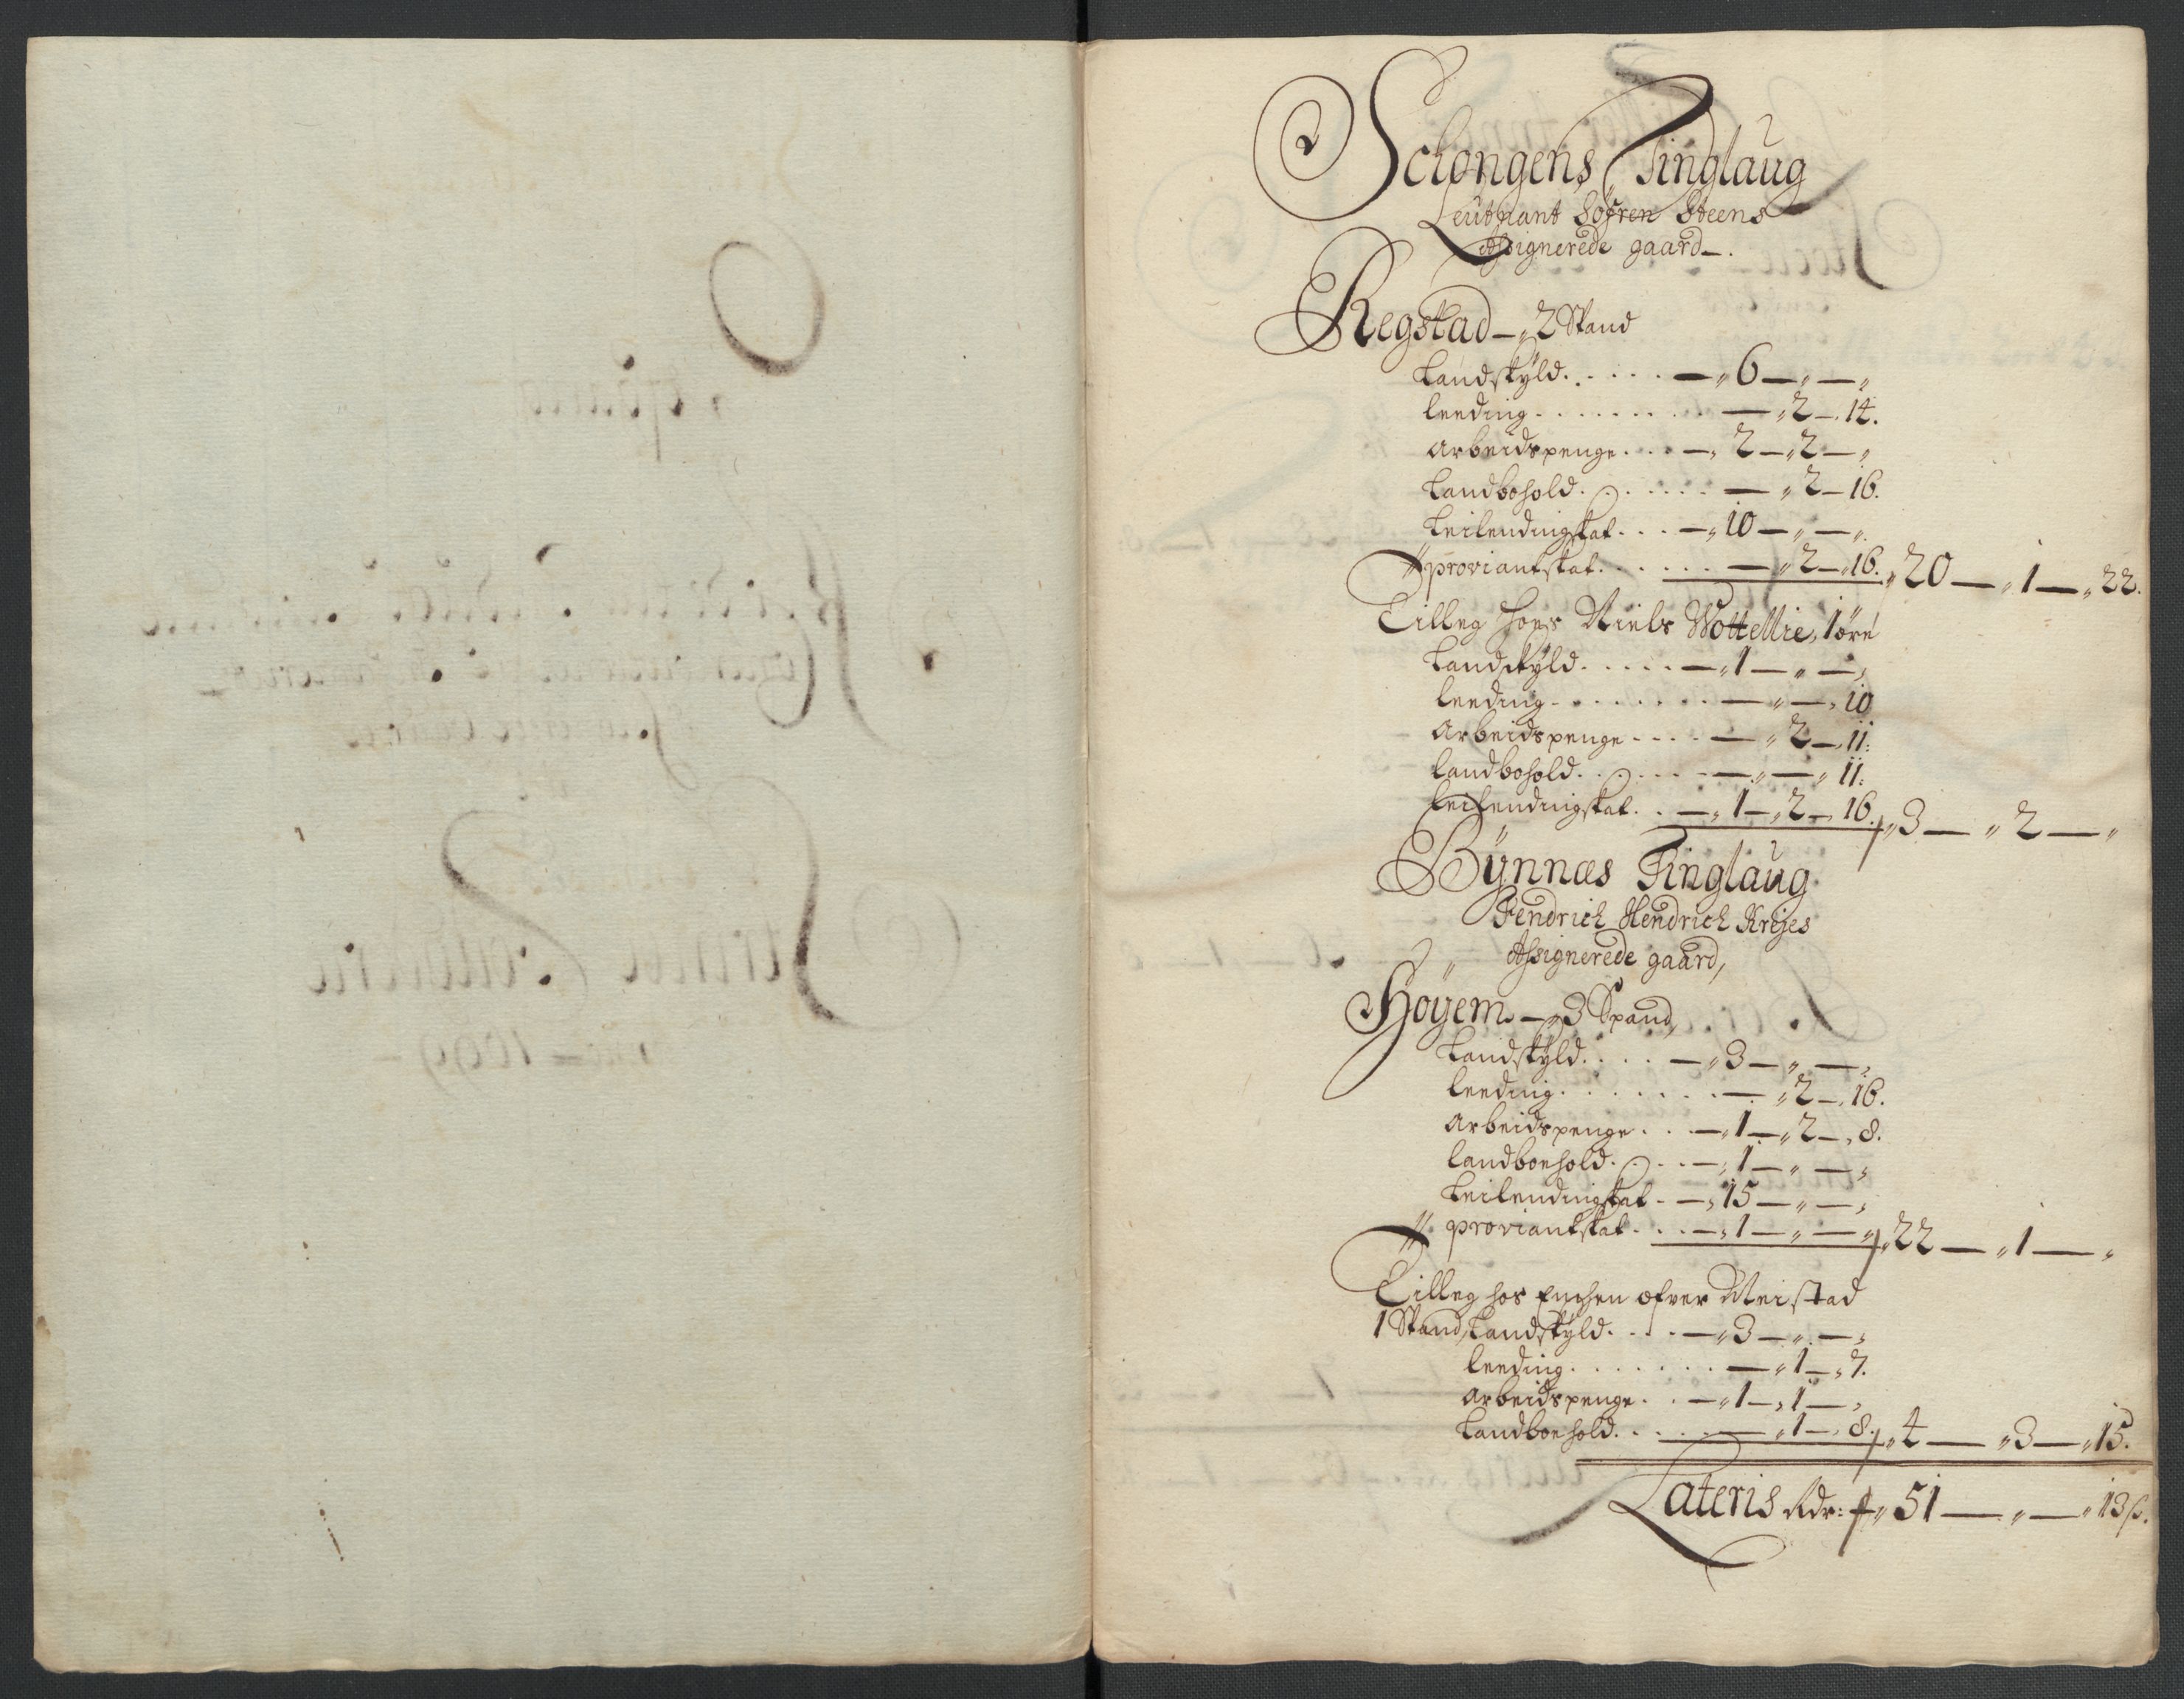 Schongens Tinglaug
Leutnant Söfren Steens
Assignerede gaard —.
Regstad — „ 2 Spand
Landskyld. . . . . — „ 6 — „ — „
leeding . . . . . . . . — „ 2 — 14.
arbeidspenge . . . — „ 2 — „ 2 — „
Landbohold. . . . . . — „ 2 — 16.
Leilendingskat . . . — „ 10 — „ — „
proviantskat. . . . . . — „ 2 — „ 16. „ 20 — „ 1 — „ 22.
Tilleg hoes Niels Wottellie, 1 öre
Landskyld. . . . . — „ 1 — „ — „
leeding . . . . . . . — „ — „ 10
Arbeidspenge . . . . — „ 2 — „ 11:
landbohold. . . . . . — „ — „ 11:
leilendingskat. . — „ 1 — „ 2 — „ 16. „ 3 — „ 2 — „
Bÿnnæs Tinglaug
Fendrich Hendrich Krijes
Assignerede gaard,
Höyem — „ 3 Spand,
Landskyld. . . . — „ 3 — „ — „
leeding . . . . . . . — „ 2 — „ 16.
Arbeidspenge . . . — „ 1 — „ 2 — „ 8.
landboehold. . . . — „ 1 — „ — „
Leilendingskat . — „ 15 — „ — „
proviantskat . . . — „ 1 — „ — „ „ 22 — „ 1 — „
Tilleg hos Enchen ofver Meistad
1 Spand, Landskyld. . . . — „ 3 — „ — „
leeding . . . . . . . — „ 1 — „ 7.
Arbeidspenge . . — „ 1 — „ 1 — „
Landboehold. . . . . — „ 1 — „ 8. „ 4 — „ 3 — „ 15.
Lateris Rdr: „ 51 — „ — „ 13 ß.